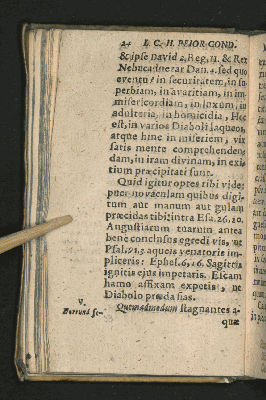 24 E. C. H. PRIOR COND.
& ipse David 2. Reg. 11. & Rex
Nebucadnezar Dan. 4. sed quo
eventu? in securitatem, in su-
perbiam, in avaritiam, in im-
misericordiam, in luxum, in
adulteria, in homicidia, Hoc
est, in varios Diaboli laqueos,
atque hinc in miseriem, vix
satis mente comprehenden-
dam, in iram divinam, in exi-
tium præcipitati sunt.
Quid igitur optes tibi vide:
puer novaculam quibus digi-
tum aut manum aut gulam
præcidas tibi? intra Esa. 26, 20.
Angustiarum tuarum antra
bene conclusus egredi vis, ne
Psal. 91. 3. a queis venatoris im-
pliceris: Ephes. 6, 16. Sagittis
ignitis ejus impetaris. Escam
hamo affixam expetis, ne
Diabolo præda fias.
V. Quemadmodum stagnantes a-
Bertund se-
quæ